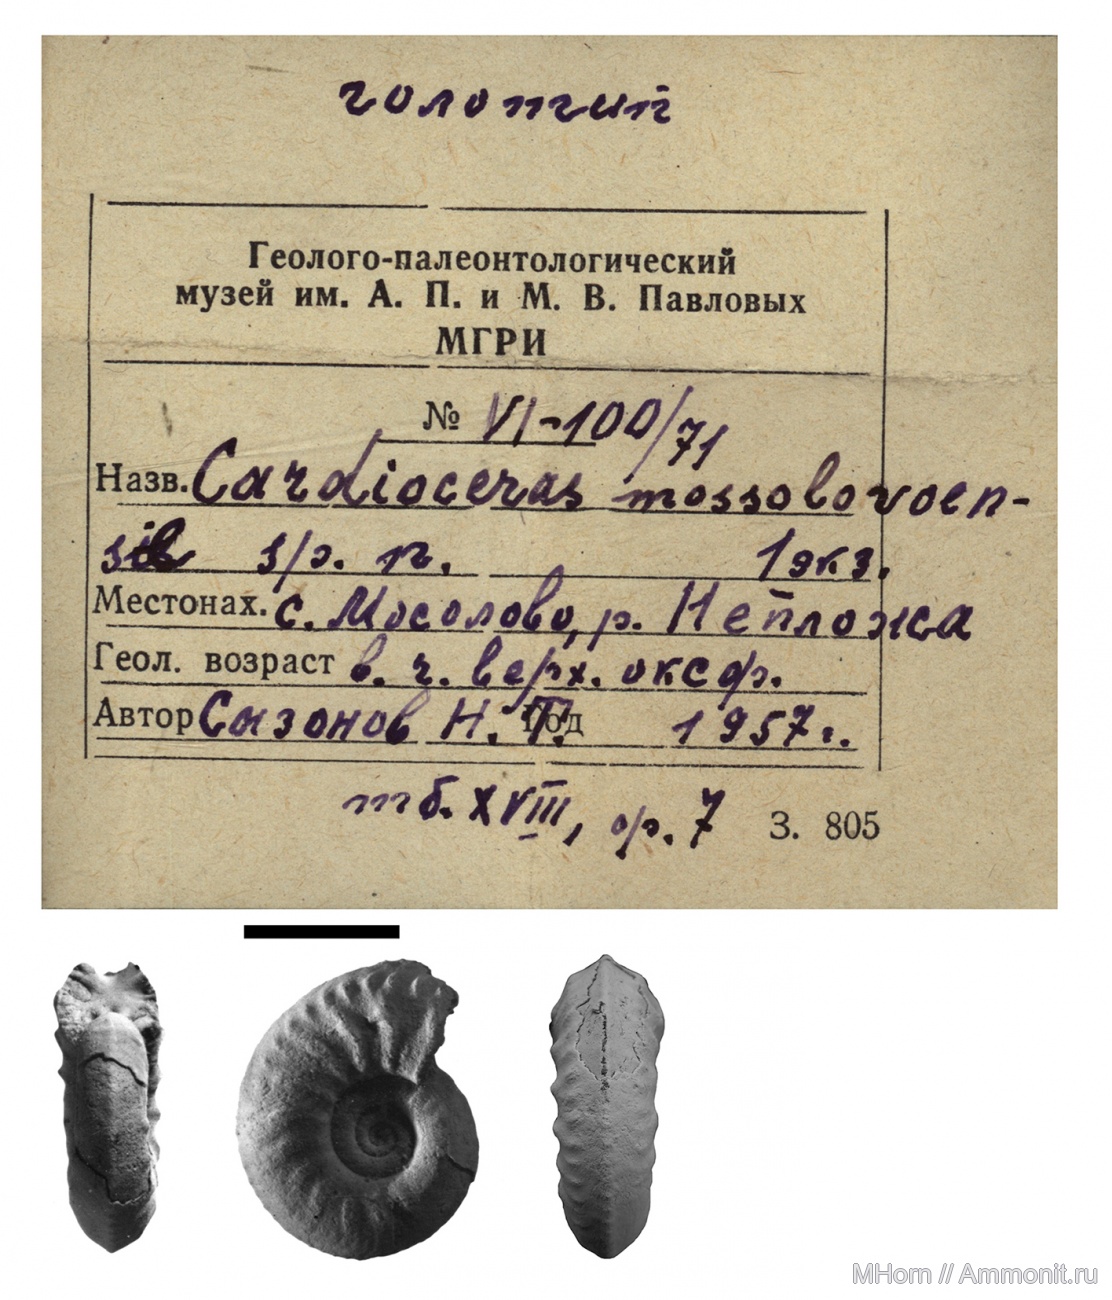 голотип
Геолого-палеонтологический
музей им. А. П. и М. В. Павловых
МГРИ
№ VI-100/71
Назв. Cardioceras mossolovoen-
sis sp. n. 1 экз.
Местонах. с. Мосолово, р. Непложа
Геол. возраст в. ч. верх. оксф.
Автор Сазонов Н. Т. Год 1957 г.
тб. XVIII, ф. 7 З. 805
MHorn // Ammonit.ru